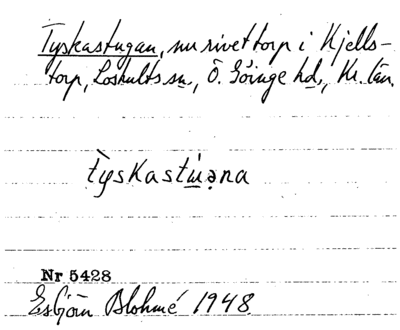 Tyskastugan, nu rivet torp i Kjells-
torp, Loshults sn, Ö. Göinge hd, Kr. län.
tỳskastúəna
Nr 5428
Esbjörn Blohmé 1948